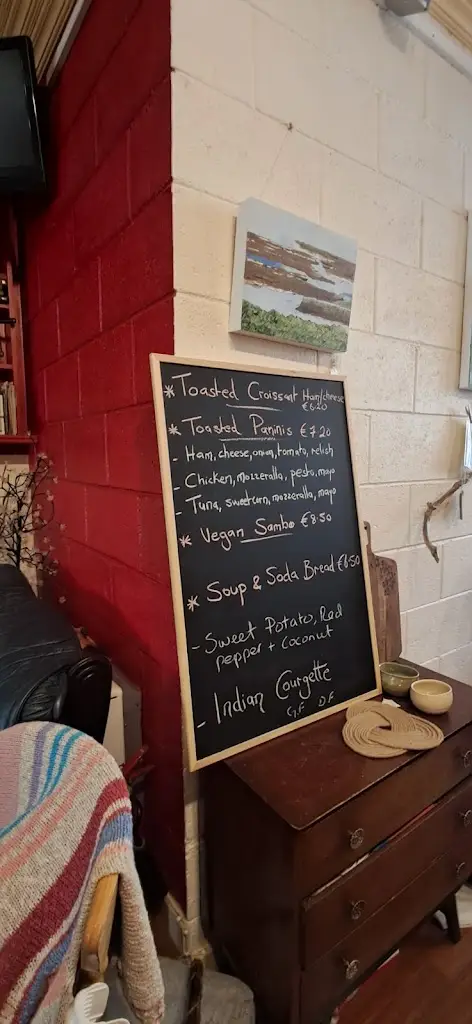 * Toasted Croissant Ham/cheese
€6.20
* Toasted Paninis €7.20
- Ham, cheese, onion, tomato, relish
- Chicken, mozzeralla, pesto, mayo
- Tuna, sweetcorn, mozzeralla, mayo
* Vegan Sambo €8.50
* Soup & Soda Bread €6.50
- Sweet Potato, Red
pepper + Coconut
- Indian Courgette
G.F D.F